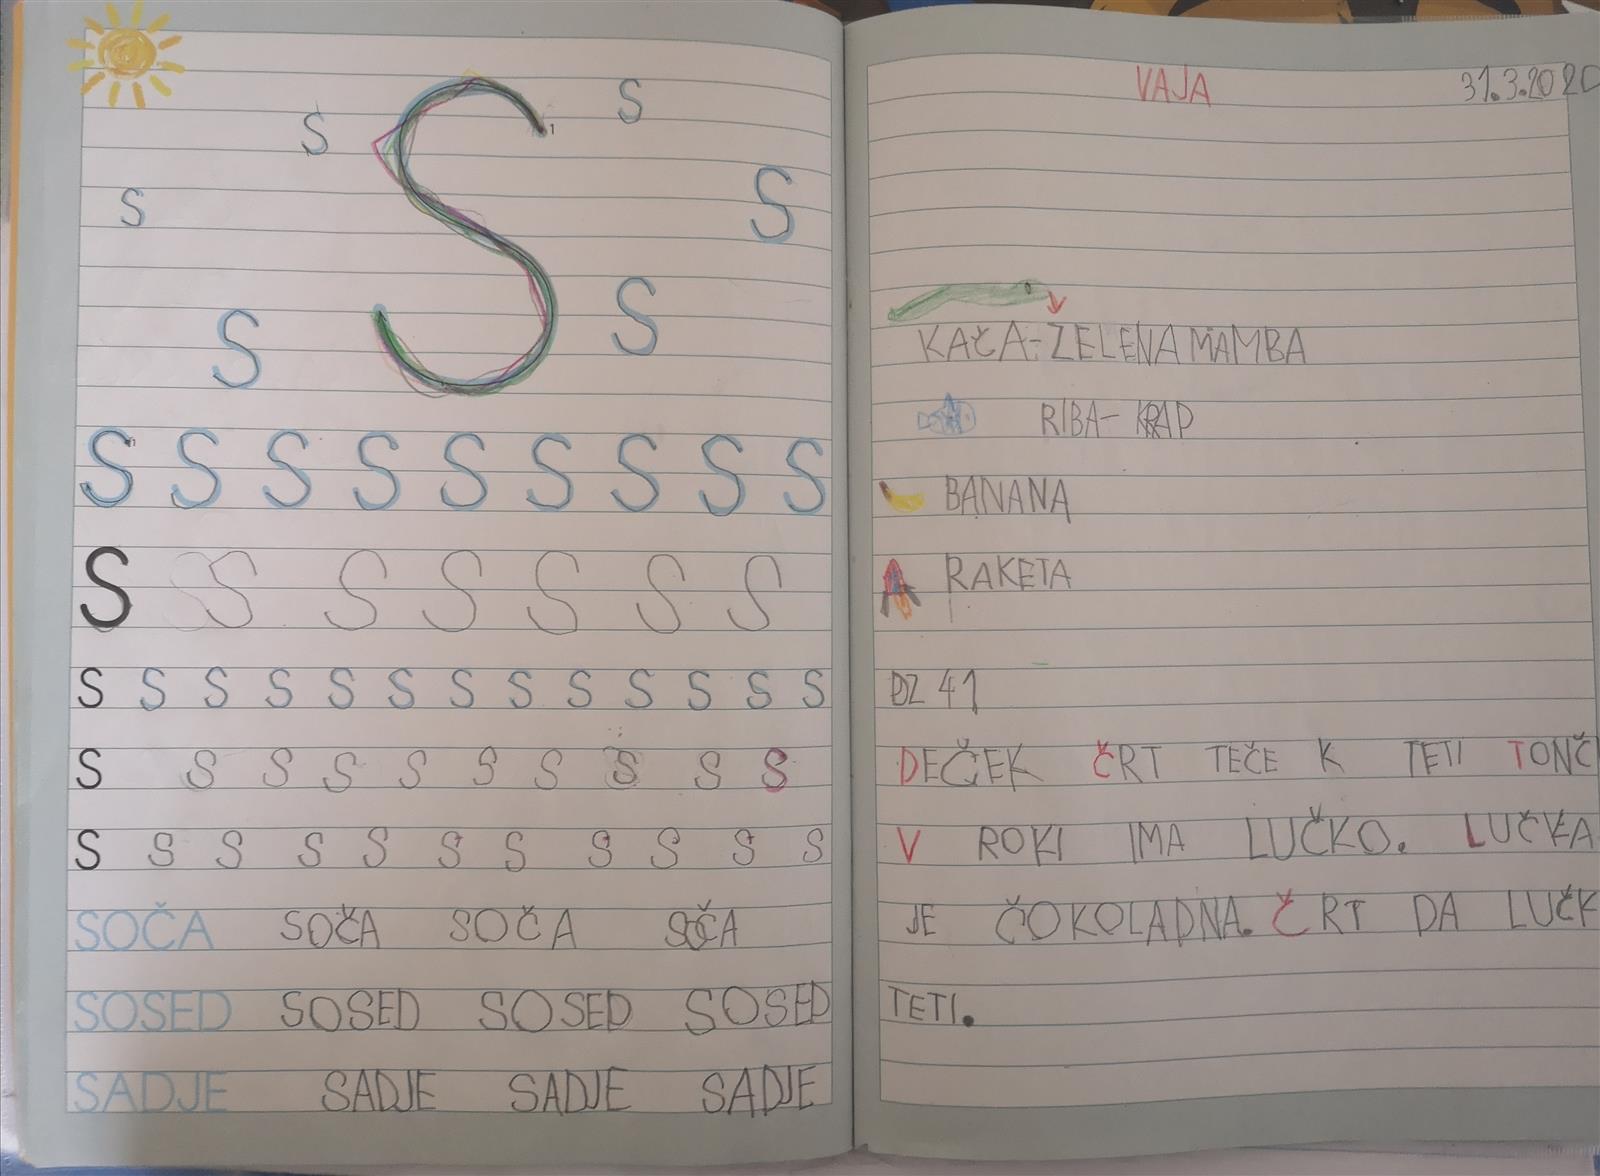 S S
S S
S S
S S
S S S S S S S S S
S S S S S S S
S S S S S S S S S S S S S
S S S S S S S S S S
S S S S S S S S S S S
SOČA SOČA SOČA SOČA
SOSED SOSED SOSED SOSED
SADJE SADJE SADJE SADJE
VAJA 31.3.2020
KAČA-ZELENA MAMBA
RIBA- KRAP
BANANA
RAKETA
DZ 41
DEČEK ČRT TEČE K TETI TONČ
V ROKI IMA LUČKO. LUČKA
JE ČOKOLADNA. ČRT DA LUČK
TETI.